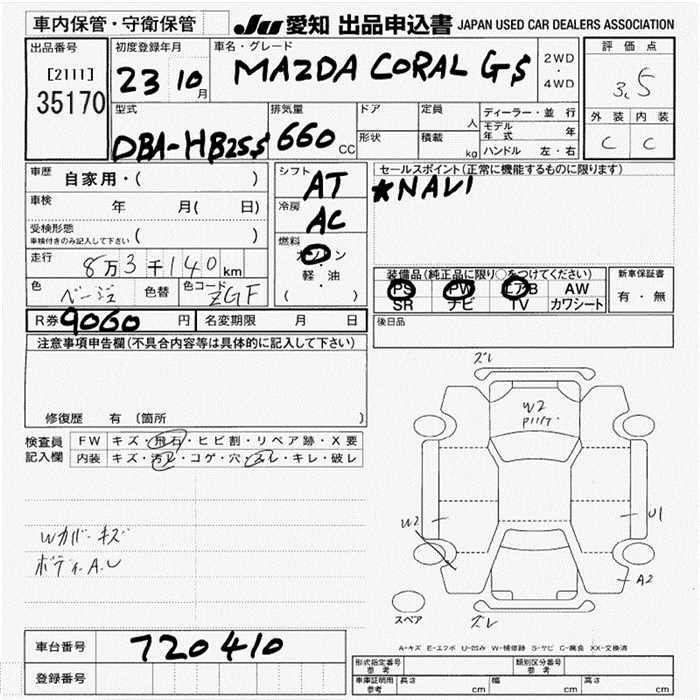 車内保管・守衛保管
JU 愛知 出品申込書 JAPAN USED CAR DEALERS ASSOCIATION
出品番号
[2111]
35170
初度登録年月
23 10月
車名・グレード
MAZDA CORAL GS
2WD
・
4WD
評価点
3.5
外装 内装
C C
型式
DBA-HB25S
排気量
660 cc
ドア
形状
定員
人
積載
kg
ディーラー・並行
モデル年式 年
ハンドル 左・右
車歴
自家用・( )
車検 年 月( 日)
受検形態
車検付きのみ記入して下さい ( )
走行
8万3千140km
色
ベージュ
色替
色コード
ZGF
シフト
AT
冷房
AC
燃料
ガソリン
軽・油
( )
セールスポイント(正常に機能するものに限ります)
★NAVI
装備品(純正品に限り○をつけてください)
PS PW エアB AW
SR ナビ TV カワシート
新車保証書
有・無
後日品
R券 9060 円 名変期限 月 日
注意事項申告欄(不具合内容等は具体的に記入して下さい)
修復歴 有 (箇所 )
検査員
記入欄
FW キズ・飛石・ヒビ割・リペア跡・X要
内装 キズ・汚レ・コゲ・穴・スレ・キレ・破レ
Wカバーキズ
ボディA.U
ズレ
W2
W2
U1
A2
スペア
ズレ
A-キズ E-エクボ U-凹み W-補修跡 S-サビ C-腐食 XX-交換済
車台番号 720410
登録番号
形式指定番号
参考
類別区分番号
参考
車庫証明用
参考
長さ cm 幅 cm 高さ cm